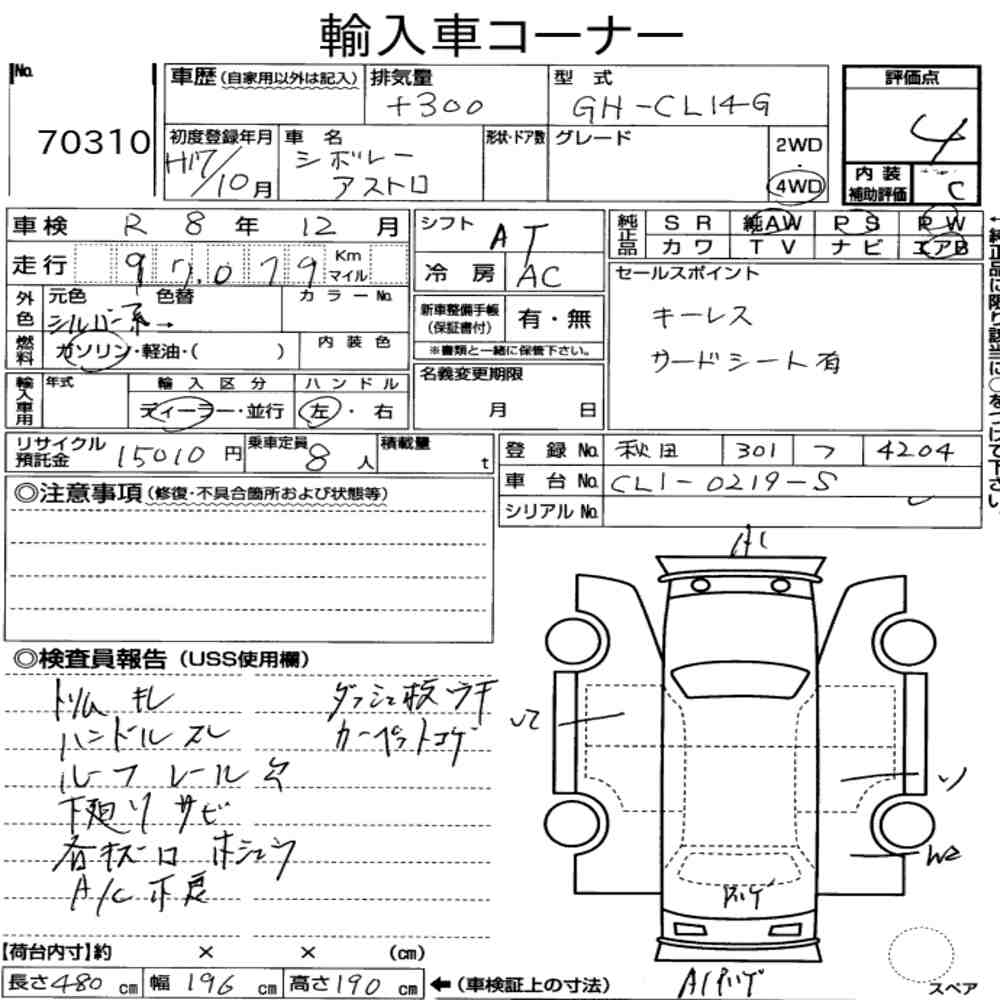 輸入車コーナー
No. 70310
車歴 (自家用以外は記入)
排気量 4300
型式 GH-CL14G
評価点 4
初度登録年月 H17/10月
車名 シボレー アストロ
形状・ドア数
グレード
2WD
4WD
内装補助評価 C
車検 R 8年 12月
シフト AT
純正品 SR 純AW PS PW
カワ TV ナビ エアB
走行 97,079 Km マイル
冷房 AC
セールスポイント
キーレス
サードシート有
外色 元色 シルバー系→ 色替 カラーNo.
燃料 ガソリン・軽油・( ) 内装色
新車整備手帳 (保証書付) 有・無
※書類と一緒に保管下さい。
輸入車用 年式 輸入区分 ディーラー・並行 ハンドル 左・右
名義変更期限 月 日
リサイクル預託金 15010円
乗車定員 8人
積載量 t
登録No. 秋田 301 フ 4204
車台No. CL1-0219-S
シリアルNo.
←純正品に限り該当に○をつけて下さい。
◎注意事項 (修復・不具合箇所および状態等)
◎検査員報告 (USS使用欄)
トリム キレ
ハンドル スレ
ルーフ レール 欠
下廻り サビ
各キズ凹 ホシュウ
A/C
カーペットコゲ
A1
W2
【荷台内寸】約 × × (cm)
長さ480cm 幅196cm 高さ190cm ←(車検証上の寸法)
スペア